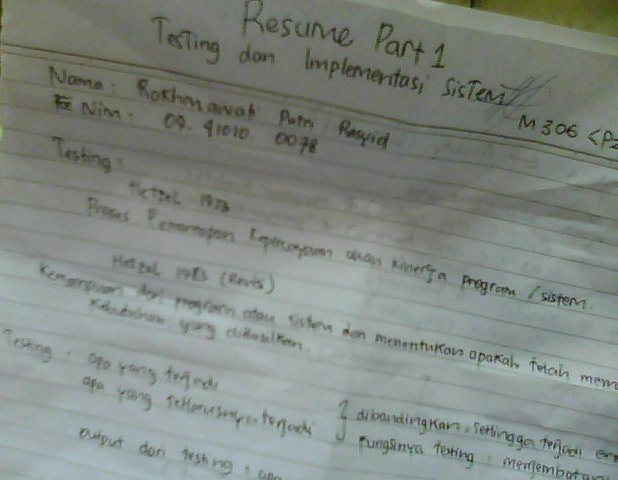 Resume Part 1
Testing dan Implementasi Sistem
M306 <P
Nama : Rakhmawati Putri Rasyid
Nim. 09. 41010 0078
Testing :
Hetzel 1973
Proses Pemantapan kepercayaan akan kinerja program / sistem.
Hetzel 1983 (Revisi)
Kemampuan dari program atau sistem dan menentukan apakah telah mem
Kebutuhan yang dihasilkan.
Testing : apa yang terjadi
apa yang seharusnya terjadi } dibandingkan, sehingga terjadi
fungsinya testing : menjembatani
output dari testing :